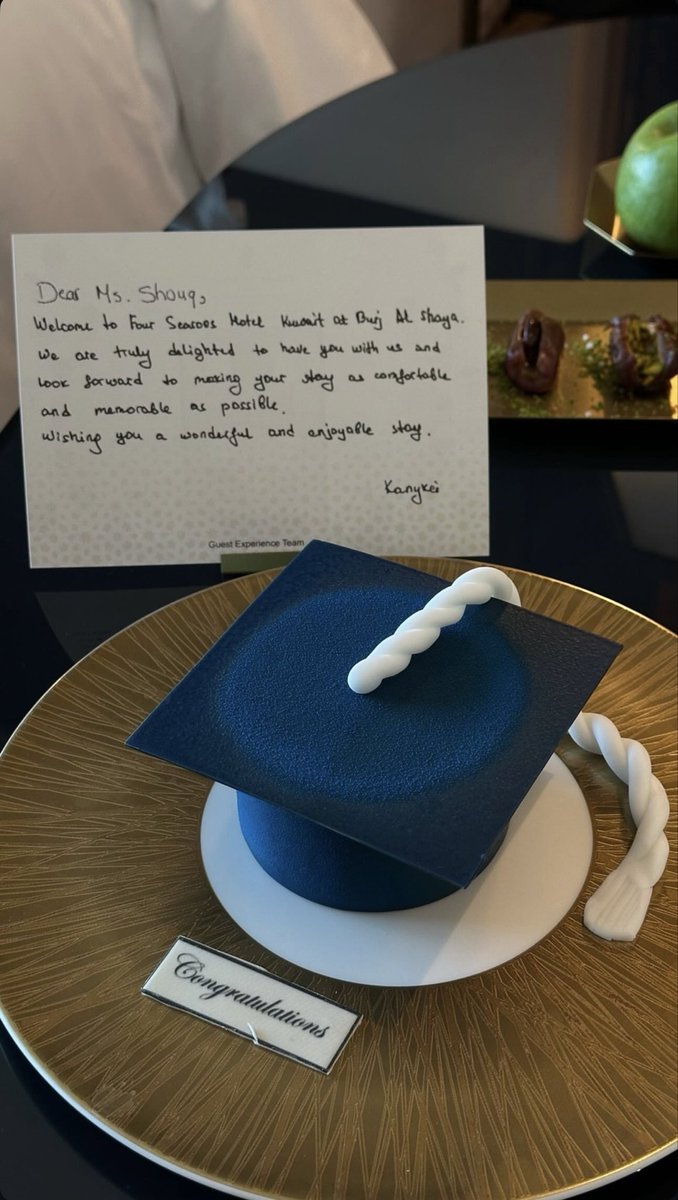 Dear Ms. Shouq,
Welcome to Four Seasons Hotel Kuwait at Burj Al Shaya.
We are truly delighted to have you with us and
look forward to making your stay as comfortable
and memorable as possible.
Wishing you a wonderful and enjoyable stay.
Kanykei
Guest Experience Team
Congratulations